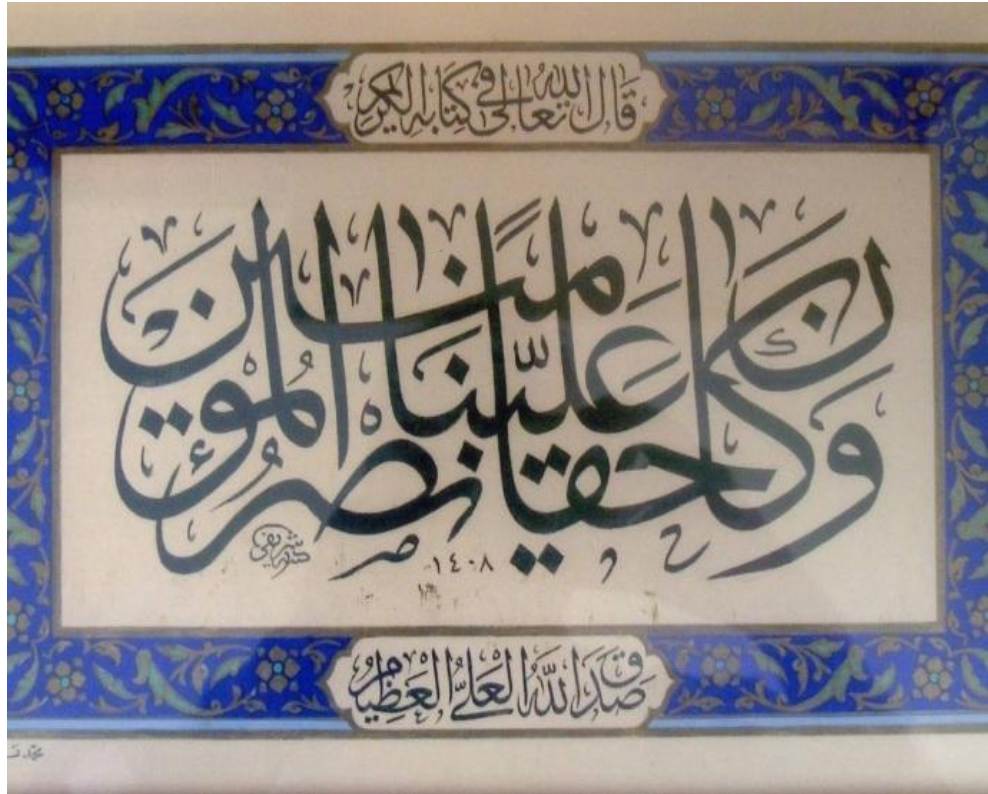 قَالَ اللهُ تَعَالَى فِي كِتَابِهِ الكَرِيمِ
وَكَانَ حَقًّا عَلَيْنَا نَصْرُ الْمُؤْمِنِينَ
شريفي
١٤٠٨
صَدَقَ اللهُ العَلِيُّ العَظِيمُ
محمد